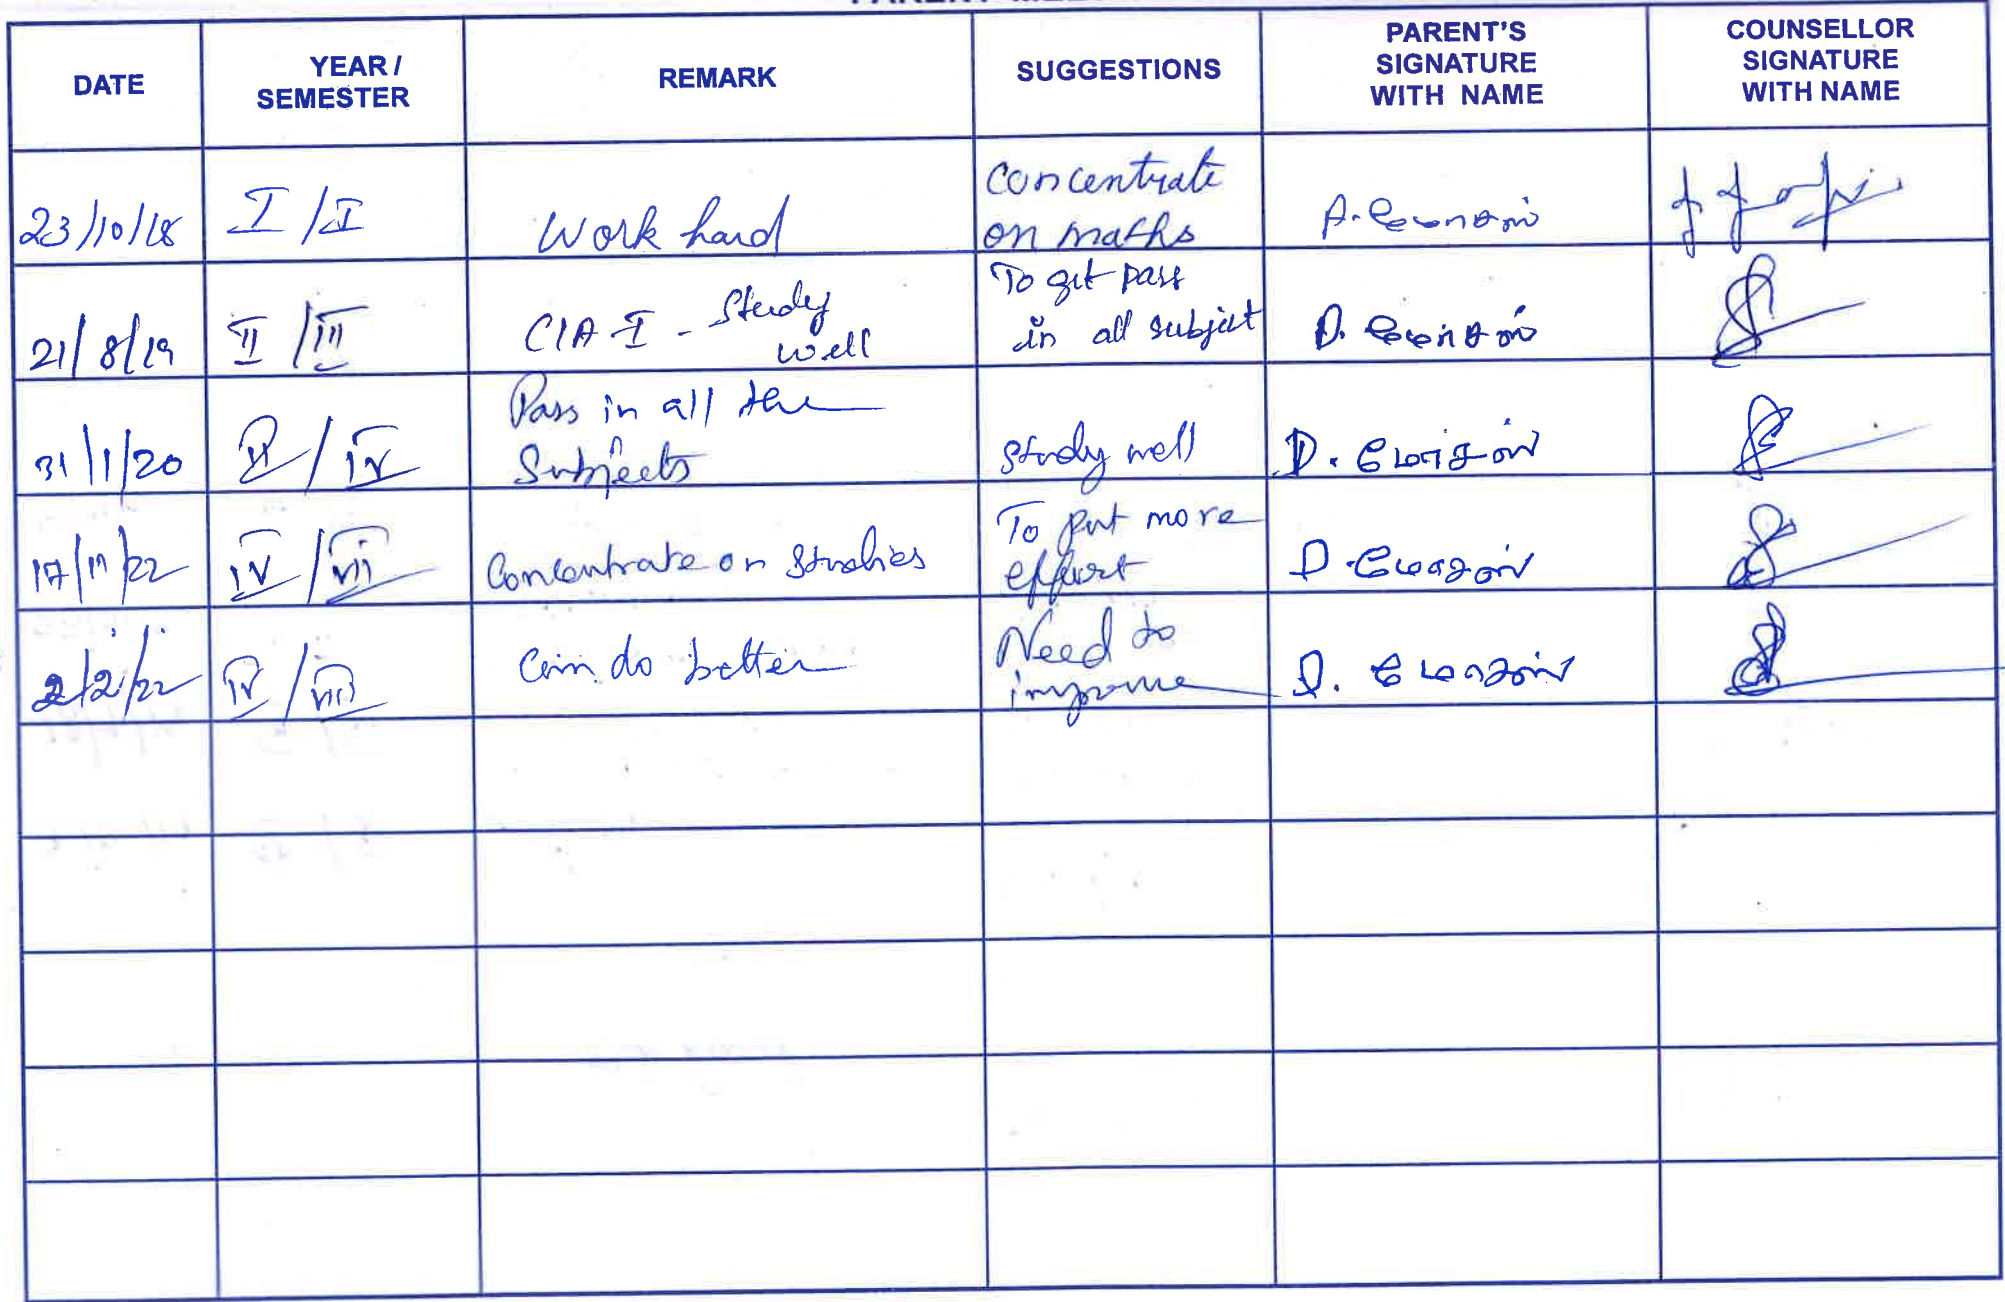 DATE
YEAR /
SEMESTER
REMARK
SUGGESTIONS
PARENT'S
SIGNATURE
WITH NAME
COUNSELLOR
SIGNATURE
WITH NAME
23/10/18
I / I
Work hard
Concentrate
on maths
21/8/19
II / III
CIA I - Study
well
To get pass
in all subject
31/1/20
II / IV
Pass in all the
Subjects
study well
IV / VII
Concentrate on Studies
To put more
effort
2/2/22
IV / VIII
Can do better
Need to
improve